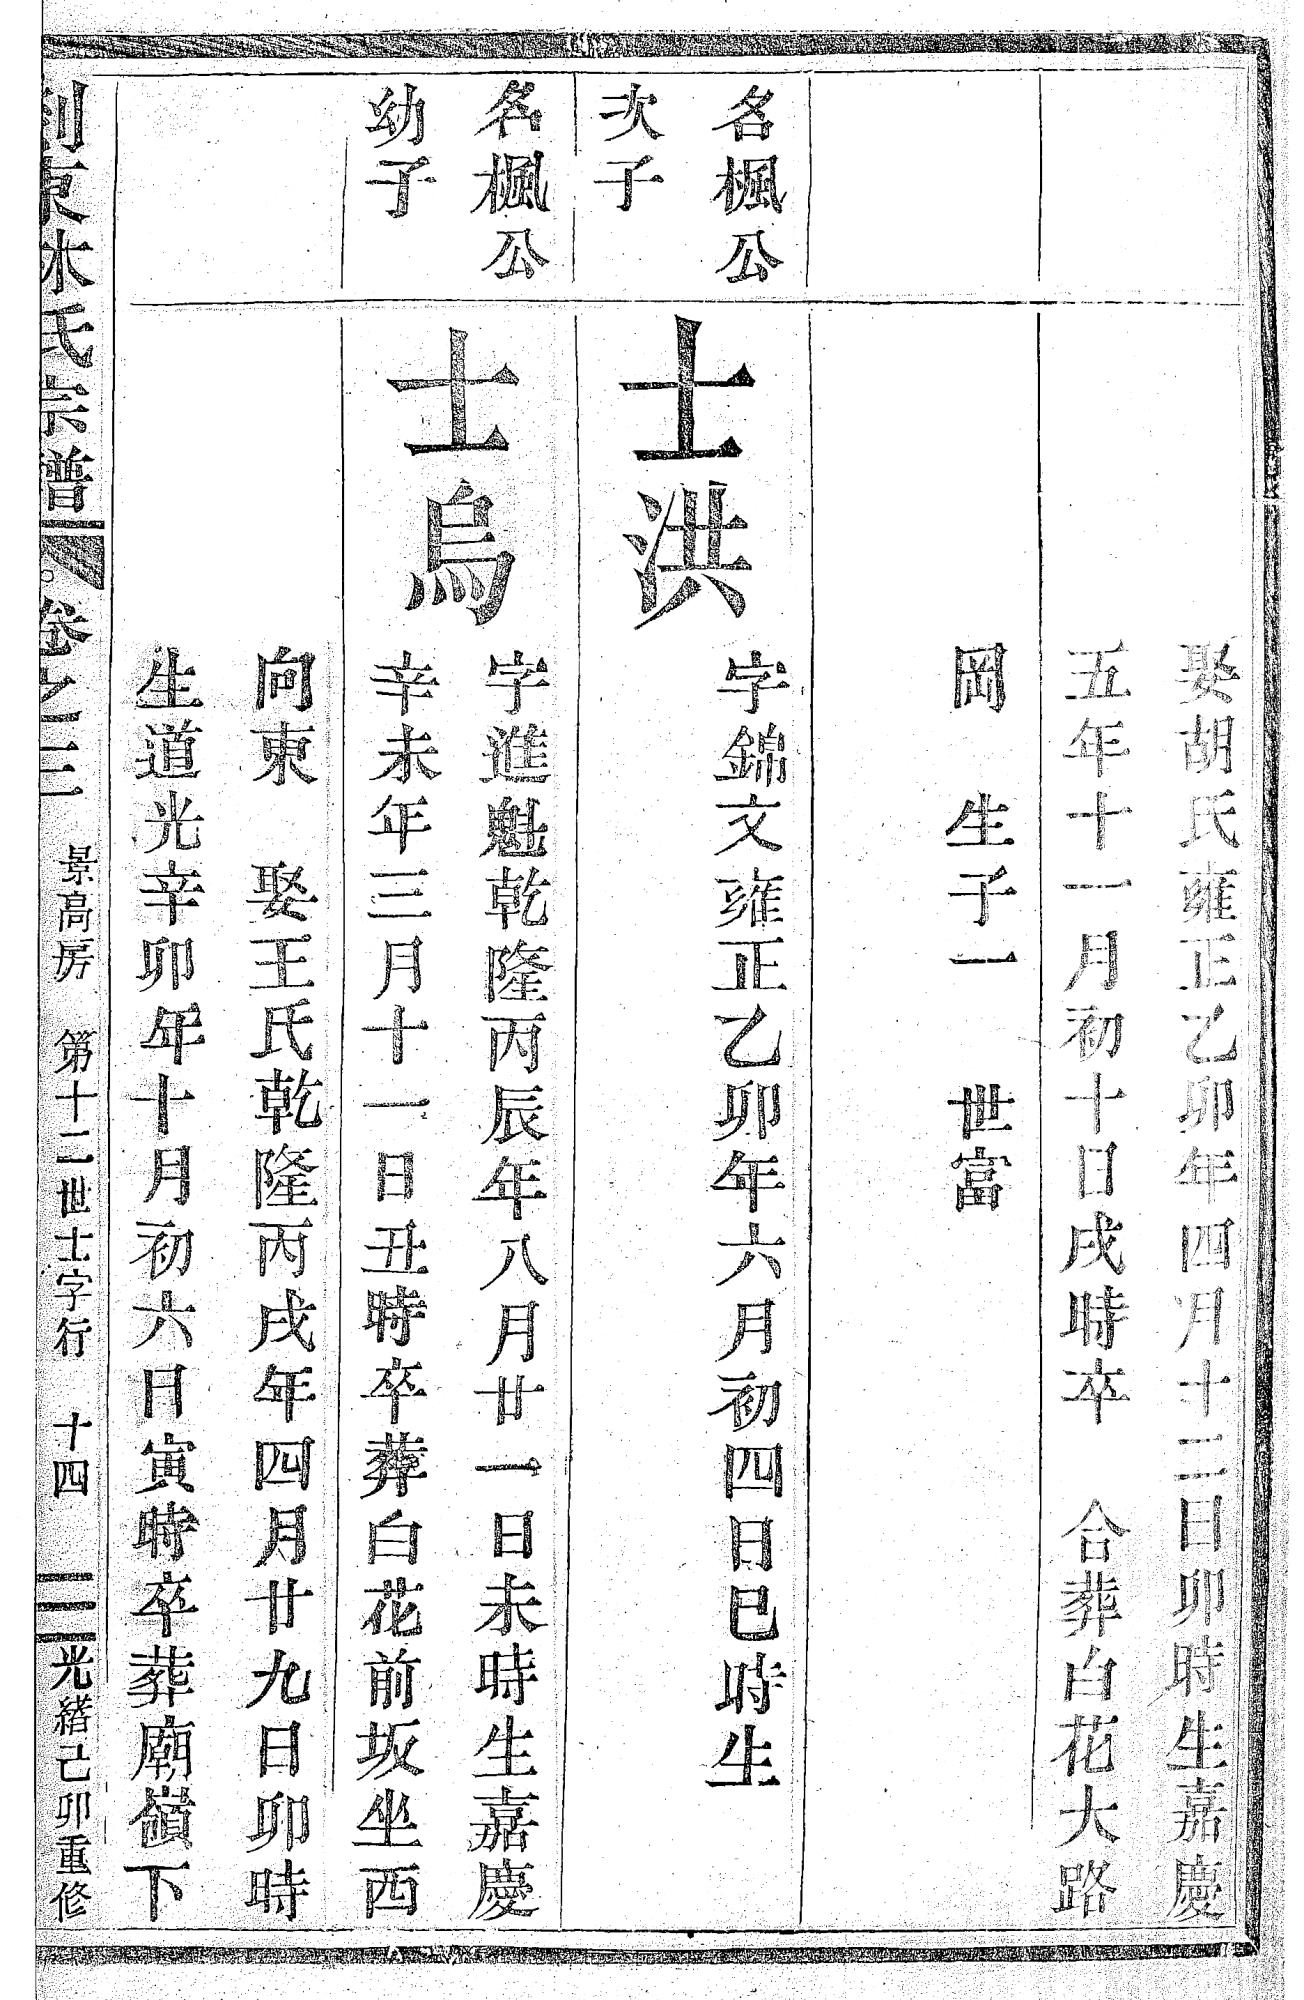 娶胡氏雍正乙卯年四月十二日卯時生嘉慶
五年十一月初十日戌時卒 合葬白花大路
岡 生子一 世富
名楓公
次子
士洪
字錦文雍正乙卯年六月初四日巳時生
名楓公
幼子
士烏
字進魁乾隆丙辰年八月廿一日未時生嘉慶
辛未年三月十一日丑時卒葬白花前坂坐西
向東 娶王氏乾隆丙戌年四月廿九日卯時
生道光辛卯年十月初六日寅時卒葬廟嶺下
剡東水氏宗譜 卷之三 景高房 第十二世士字行 十四 光緒己卯重修